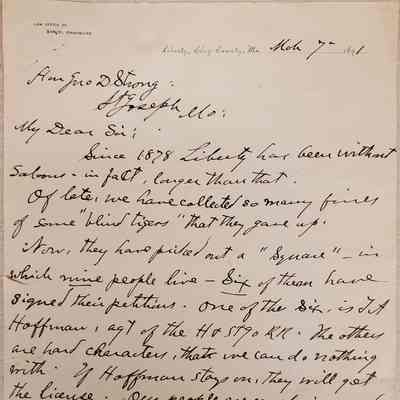 LAW OFFICE OF
Liberty, Clay County, Mo. Mch 7 1891
Hon Geo D Strong:
St Joseph Mo:
My Dear Sir;
Since 1878 Liberty has been without
Saloons - in fact, longer than that.
Of late, we have collected so many fines
of some "blind tigers" that they gave up.
Now, they have picked out a "Square" - in
which nine people live - Six of them have
signed their petition. One of the Six, is
Hoffman, agt of the H & St Jo RR. The others
are hard characters, thats we can do nothing
with. If Hoffman stays on, they will get
the license. Our people are